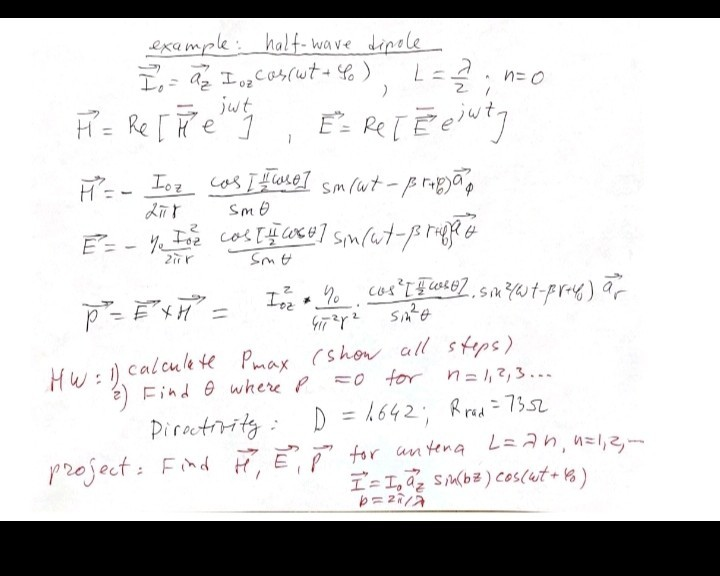 example: half-wave dipole
I⃗₀ = a⃗z I₀z cos(ωt + φ₀), L = λ/2; n=0
H⃗ = Re[H̄⃗ e^jωt], E⃗ = Re[E̅⃗ e^jωt]
H⃗ = - I₀z/2πr cos[π/2 cosθ]/sinθ sin(ωt - βr+φ₀) a⃗ϕ
E⃗ = - η₀ I₀z²/2πr cos[π/2 cosθ]/sinθ sin(ωt - βr+φ₀) a⃗θ
p⃗ = E⃗ × H⃗ = I₀z² * η₀/4π²r² · cos²[π/2 cosθ]/sin²θ · sin²(ωt-βr+φ₀) a⃗r
HW: 1) calculate Pmax (show all steps)
2) Find θ where P =0 for n=1,2,3...
Directivity: D = 1.642; Rrad = 73Ω
project: Find H⃗, E⃗, P⃗ for antena L=λn, n=1,2,...
I⃗ = I₀ a⃗z sin(bz) cos(ωt + φ₀)
b = 2π/λ